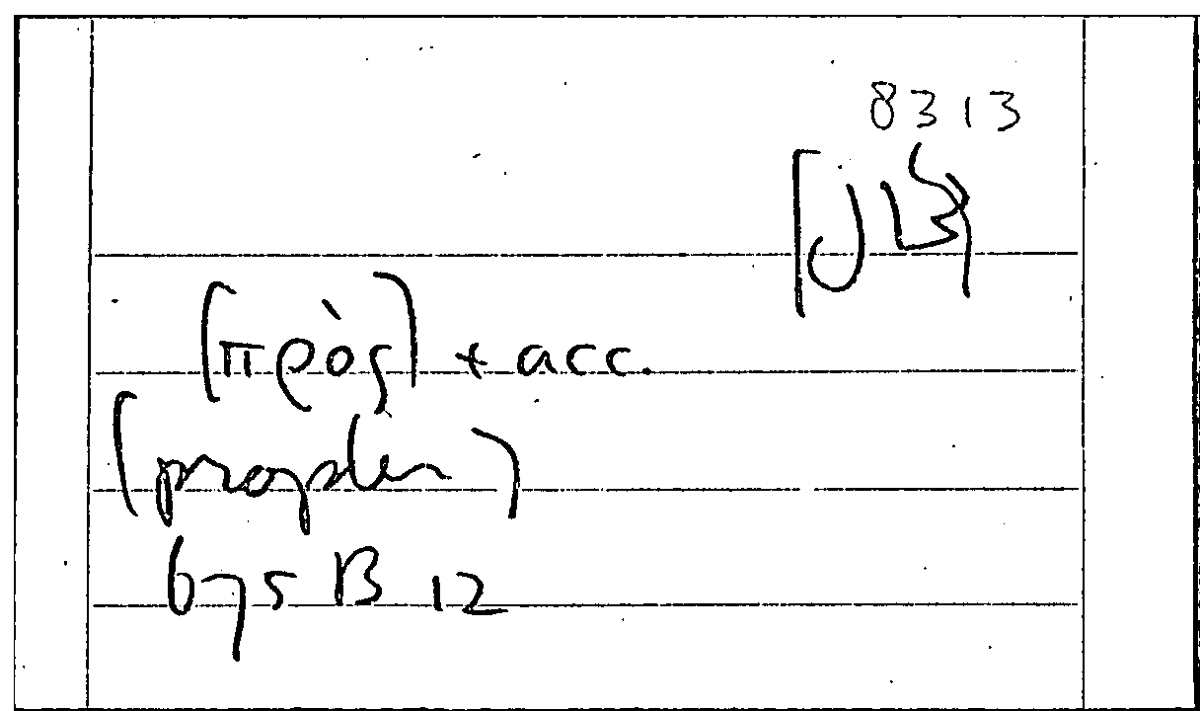 8313
[πρὸς] + acc.
(propter)
675 B 12